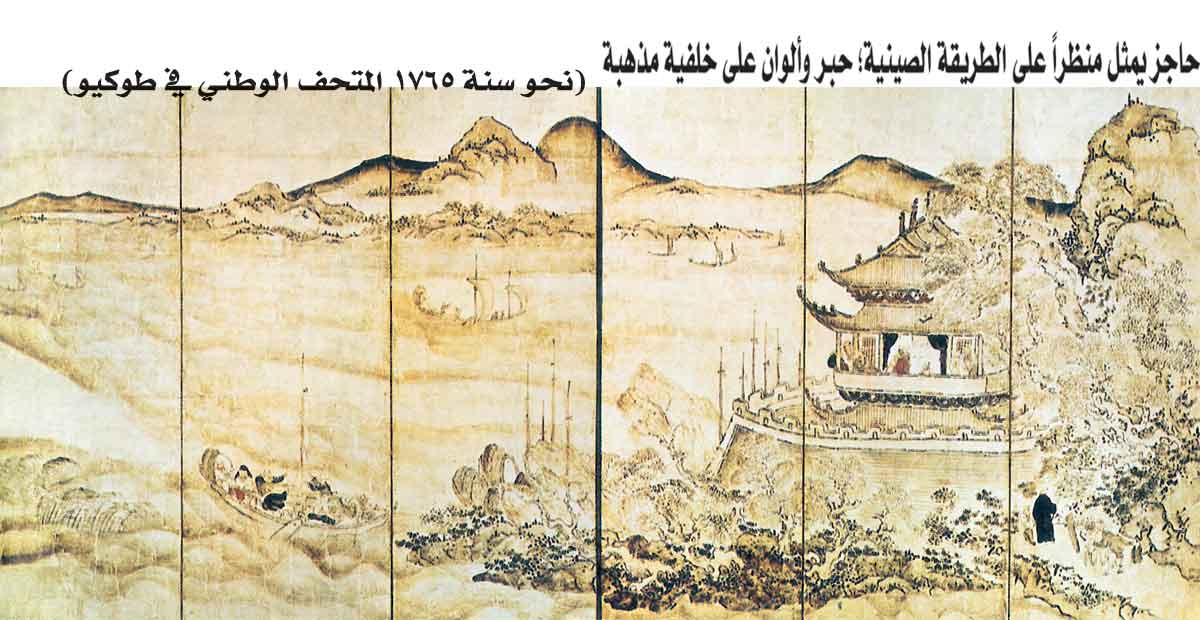 حاجز يمثل منظراً على الطريقة الصينية؛ حبر وألوان على خلفية مذهبة
(نحو سنة ١٧٦٥ المتحف الوطني في طوكيو)